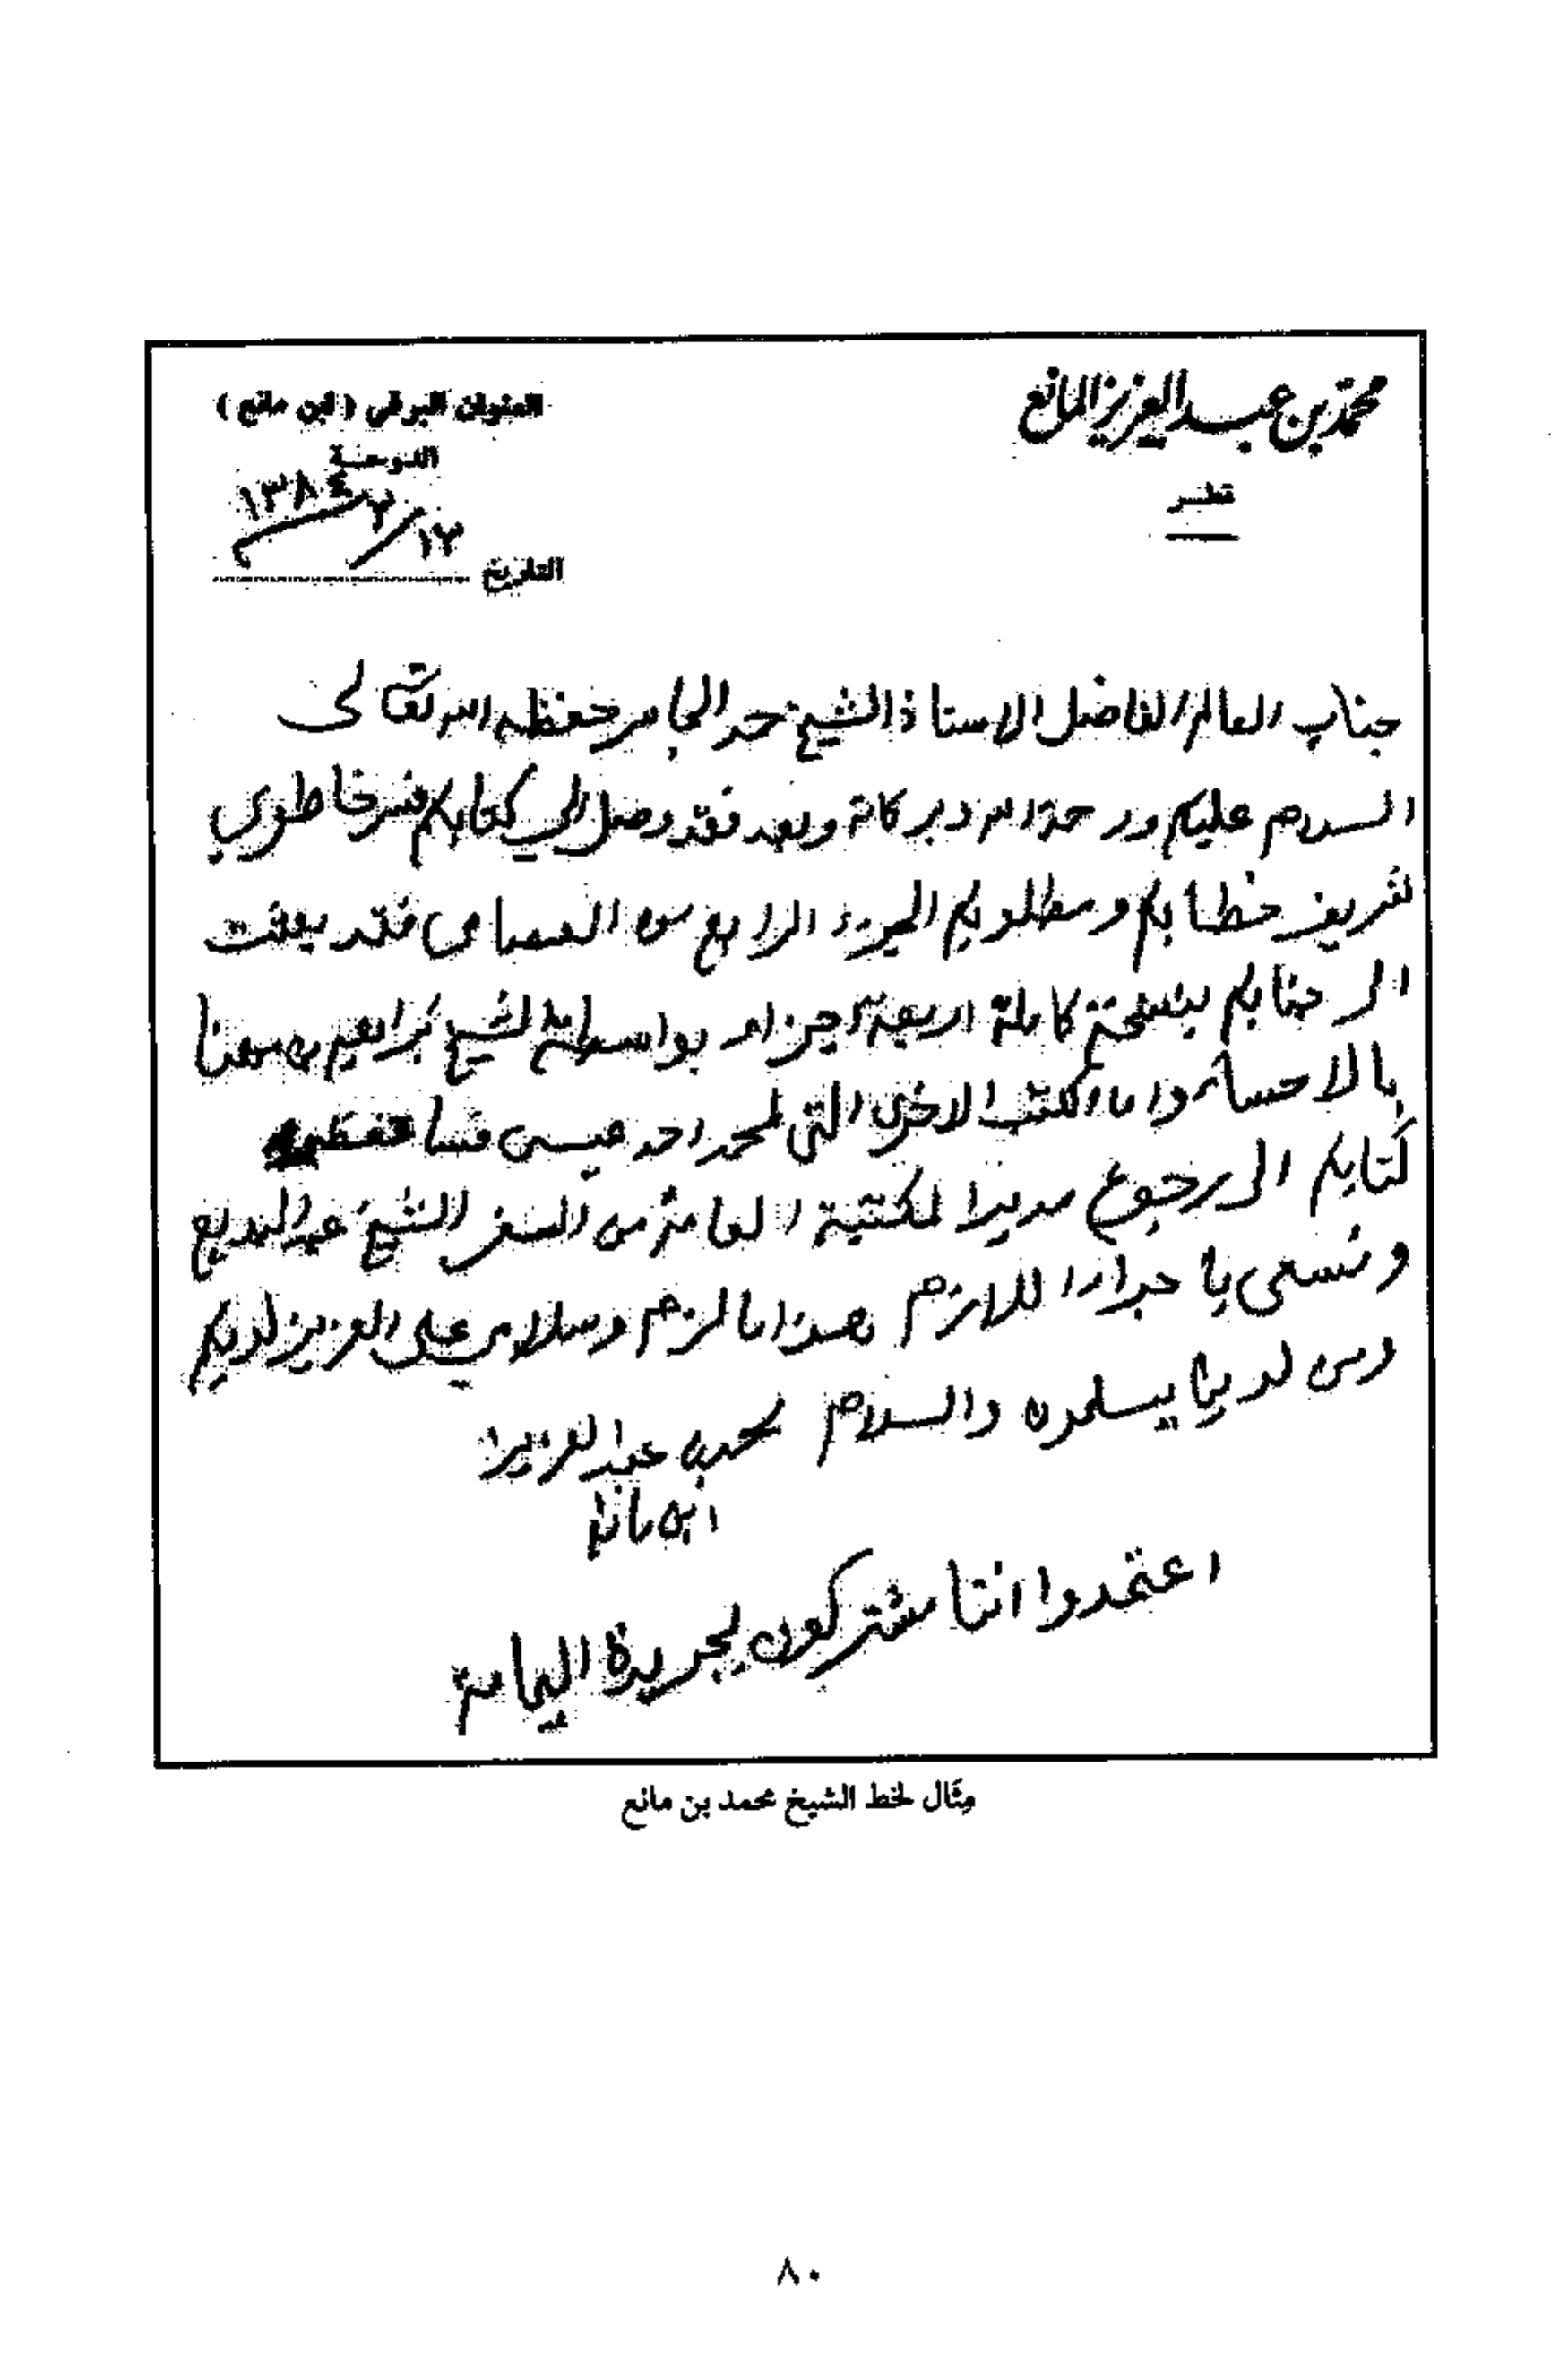 محمد بن عبد العزيز المانع
قطر
العنوان البرقي (ابن مانع)
الدوحة
١٣٨٤
١٢/٢
التاريخ
جناب العالم الفاضل الاستاذ الشيخ حمد الجاسر حفظه الله تعالى
السلام عليكم ورحمة الله وبركاته وبعد فقد وصل الي كتابكم فسر خاطري
شريف خطابكم ومطلوبكم الجزء الرابع من العصامي فقد بعثت
الى جنابكم بنسخة كاملة اربعة اجزاء بواسطة الشيخ ابراهيم بن مهنا
بالاحساء واما الكتب الاخرى التي لمحمد احمد عيسى
كتابكم الى رجوع مدير المكتبة العامة من السفر الشيخ عبد البديع
ونسعى باجراء اللازم هذا ما لزم وسلامي على العزيز لديكم
ومن لدينا يسلمون والسلام محمد بن عبد العزيز
ابن مانع
اعتمدوا اننا مشتركون بجريدة اليمامة
مثال لخط الشيخ محمد بن مانع
٨٠